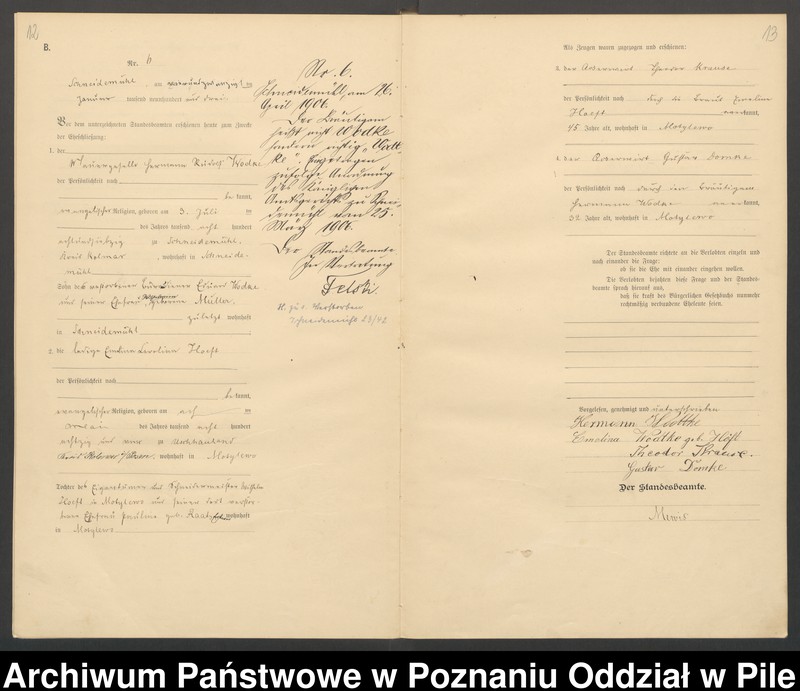 12
B.
Nr. 6
Schneidemühl, am vierundzwanzigsten
Januar tausend neunhundert und drei
Vor dem unterzeichneten Standesbeamten erschienen heute zum Zwecke
der Eheschließung:
1. der
Maurergeselle Hermann Rudolf Wodke
der Persönlichkeit nach
be kannt,
evangelischer Religion, geboren am 3. Juli
des Jahres tausend acht hundert
zu Schneidemühl,
Kreis Kolmar, wohnhaft in Schneide-
mühl
Sohn des verstorbenen Wodke
und seiner Ehefrau geborene Müller,
zuletzt wohnhaft
in Schneidemühl
2. die ledige Emilie Karoline Hoeft
der Persönlichkeit nach
be kannt,
evangelischer Religion, geboren am
des Jahres tausend acht hundert
achtzig und zu
wohnhaft in Motylewo
Tochter des Eigentümers und Schneidermeister Wilhelm
Hoeft in Motylewo und seiner dort verstor-
benen Ehefrau Pauline geb. Raatz wohnhaft
in Motylewo
No. 6.
Schneidemühl, am 26.
April 1906.
Der Bräutigam
heißt nicht Wodke
sondern richtig „Wott-
ke“. Eingetragen
zufolge Anordnung
des Königlichen
Amtsgerichts zu Schnei-
demühl vom 25.
März 1906.
Der Standesbeamte
In Vertretung
Felski
verstorben
Schneidemühl 23/42
13
Als Zeugen waren zugezogen und erschienen:
3. der Ackerwirt Theodor Krause
der Persönlichkeit nach durch die Braut Emilie
Hoeft kannt,
45 Jahre alt, wohnhaft in Motylewo
4. der Ackerwirt Gustav Domke
der Persönlichkeit nach durch den Bräutigam
Hermann Wodke kannt,
32 Jahre alt, wohnhaft in Motylewo
Der Standesbeamte richtete an die Verlobten einzeln und
nach einander die Frage:
ob sie die Ehe mit einander eingehen wollen.
Die Verlobten bejahten diese Frage und der Standes-
beamte sprach hierauf aus,
daß sie kraft des Bürgerlichen Gesetzbuchs nunmehr
rechtmäßig verbundene Eheleute seien.
Vorgelesen, genehmigt und unterschrieben
Hermann Wottke
Emelina Wodtke geb. Höft
Theodor Krause.
Gustav Domke
Der Standesbeamte.
Mewis
Archiwum Państwowe w Poznaniu Oddział w Pile